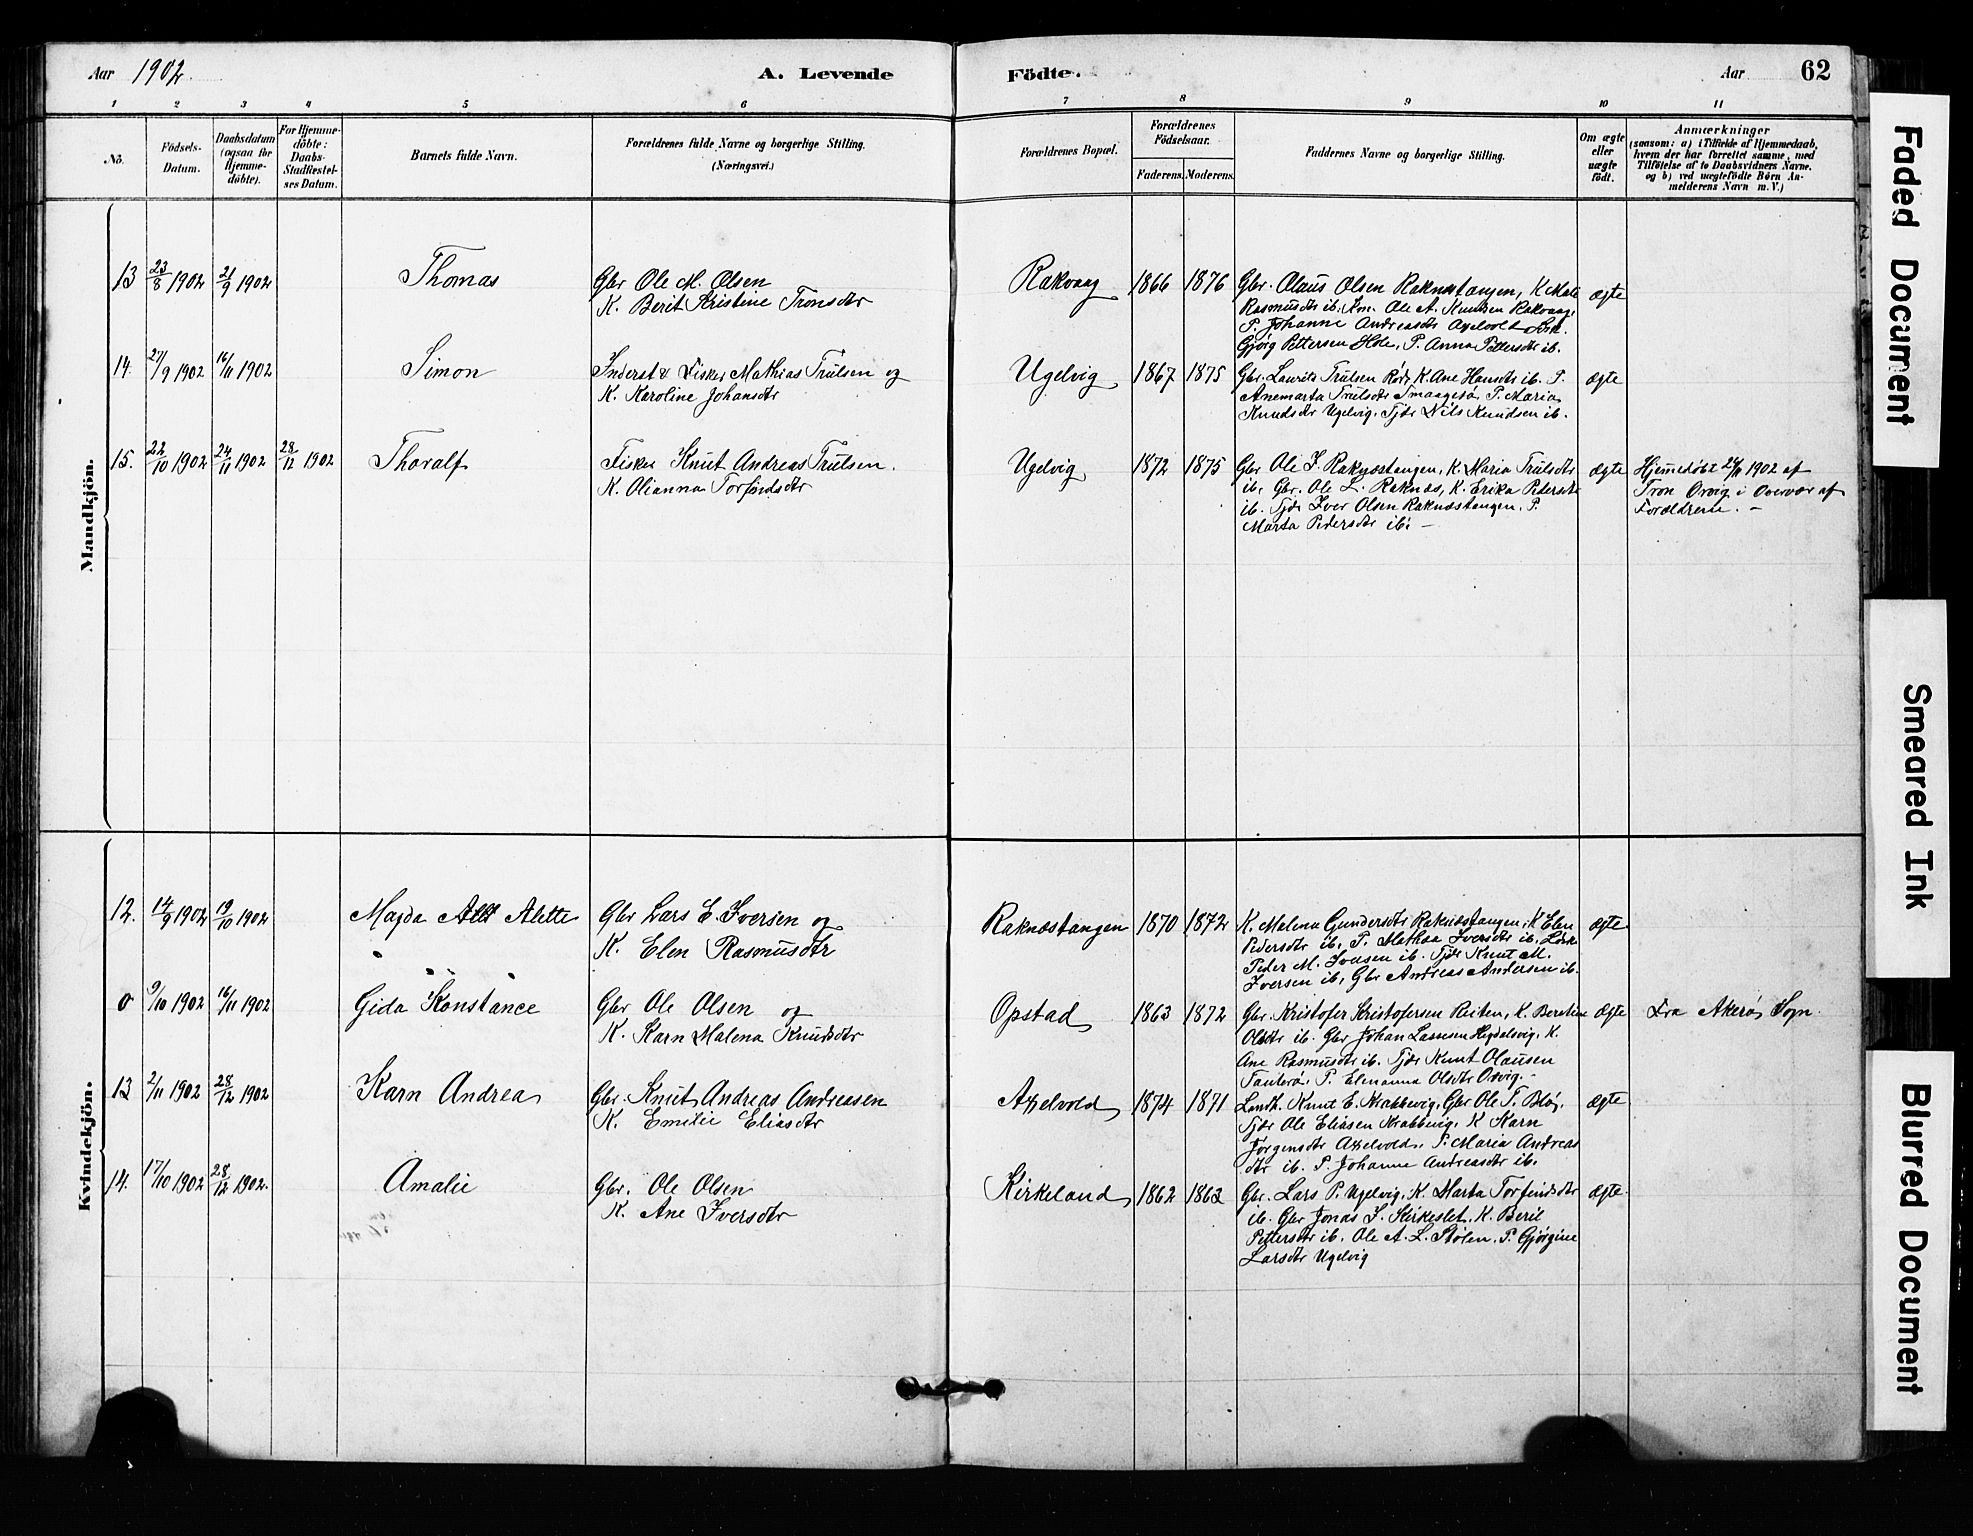 Aar 1902.
A. Levende
Födte.
Aar
62
1 2 3 4 5 6 7 8 9 10 11
No.
Födsels-
Datum.
Daabsdatum
(ogsaa for
Hjemme-
döbte).
For Hjemme-
döbte:
Daabs-
Stadfæstel-
ses Datum.
Barnets fulde Navn.
Forældrenes fulde Navne og borgerlige Stilling.
(Næringsvei.)
Forældrenes Bopæl.
Forældrenes
Födselsaar.
Faderens. Moderens.
Faddernes Navne og borgerlige Stilling.
Om ægte
eller
uægte
födt.
Anmærkninger
(saasom: a) i Tilfælde af Hjemmedaab,
hvem der har forrettet samme, med
Tilföielse af to Daabsvidners Navne,
og b) ved uægtefödte Börn An-
melderens Navn m. V.)
Mandkjön.
13 23/8 1902 21/9 1902
Thomas
Gbr Ole M. Olsen
K. Berit Kristine Tronsdtr
Rakvaag 1866 1876
Gbr. Olaus Olsen Raknæstangen, K Mate
Rasmusdtr ib. Em. Ole A. Knudsen Rakvaag,
P. Johanne Andreasdtr Axelvold
Gjörg Pettersen Hole, P. Anna Pettersdtr ib.
ægte
14. 27/9 1902 16/11 1902
Simon
Inderst & Fisker Mathias Trulsen og
K. Karoline Johansdtr
Ugelvig 1867 1875
Gbr. Laurits Trulsen Röd, K. Ane Hansdtr ib. P.
Anemarta Trulsdtr Smaagesö, P. Maria
Knudsdtr Ugelvig, Tjdr Nils Knudsen ib.
ægte
15. 22/10 1902 24/11 1902 28/12 1902
Thoralf
Fisker Knut Andreas Trulsen.
K. Olianna Torfindsdtr
Ugelvig 1872 1875
Gbr Ole I. Raknæstangen, K. Maria Trulsdtr
ib, Gbr. Ole L. Raknæs, K. Erika Pedersdtr
ib. Tjdr Iver Olsen Raknæstangen, P.
Marta Pedersdtr ib. –
ægte
Hjemmedöbt 24/11 1902 af
Tron Orvig i Overvær af
Forældrene. –
Kvindekjön.
12. 14/9 1902 19/10 1902
Magda Alette
Gbr Lars E. Iversen og
K. Elen Rasmusdtr
Raknæstangen 1870 1872
K. Malena Gundersdtr Raknæstangen, K Elen
Pedersdtr ib, P. Mathea Iversdtr ib.
Peder M. Iversen ib. Tjdr Knut M.
Iversen ib, Gbr Andreas Andersen ib.
ægte
0 9/10 1902 16/11 1902
Gida Konstance
Gbr Ole Olsen og
K. Karn Malena Knudsdtr
Opstad 1863 1872
Gbr. Kristofer Kristofersen Reiten, K. Beretine
Olsdtr ib. Gbr Johan Larsen Hegdelvig, K.
Ane Rasmusdtr ib. Tjdr Knut Olausen
Tauterö, P. Elenanna Olsdtr Orvig. –
ægte
Fra Akerö Sogn.
13 2/11 1902 28/12 1902
Karn Andrea
Gbr. Knut Andreas Andreasen
K. Emilie Eliasdtr
Axelvold 1874 1871
Landh. Knut E. Krabbevig, Gbr Ole T. Blö,
Tjdr Ole Eliasen Krabbevig, K Karn
Jörgensdtr Axelvold, P. Maria Andreas
dtr ib. P. Johanne Andreasdtr ib.
ægte
14. 17/10 1902 28/12 1902.
Amalie
Gbr. Ole Olsen
K. Ane Iversdtr
Kirkeland 1862 1863
Gbr. Lars P. Ugelvig, K. Marta Torfindsdtr
ib. Gbr Jonas L. Kirkeslet, K. Beril
Pettersdtr ib, Ole A. L. Stölen, P. Gjörgine
Larsdtr Ugelvig
ægte
Faded Document
Smeared Ink
Blurred Document